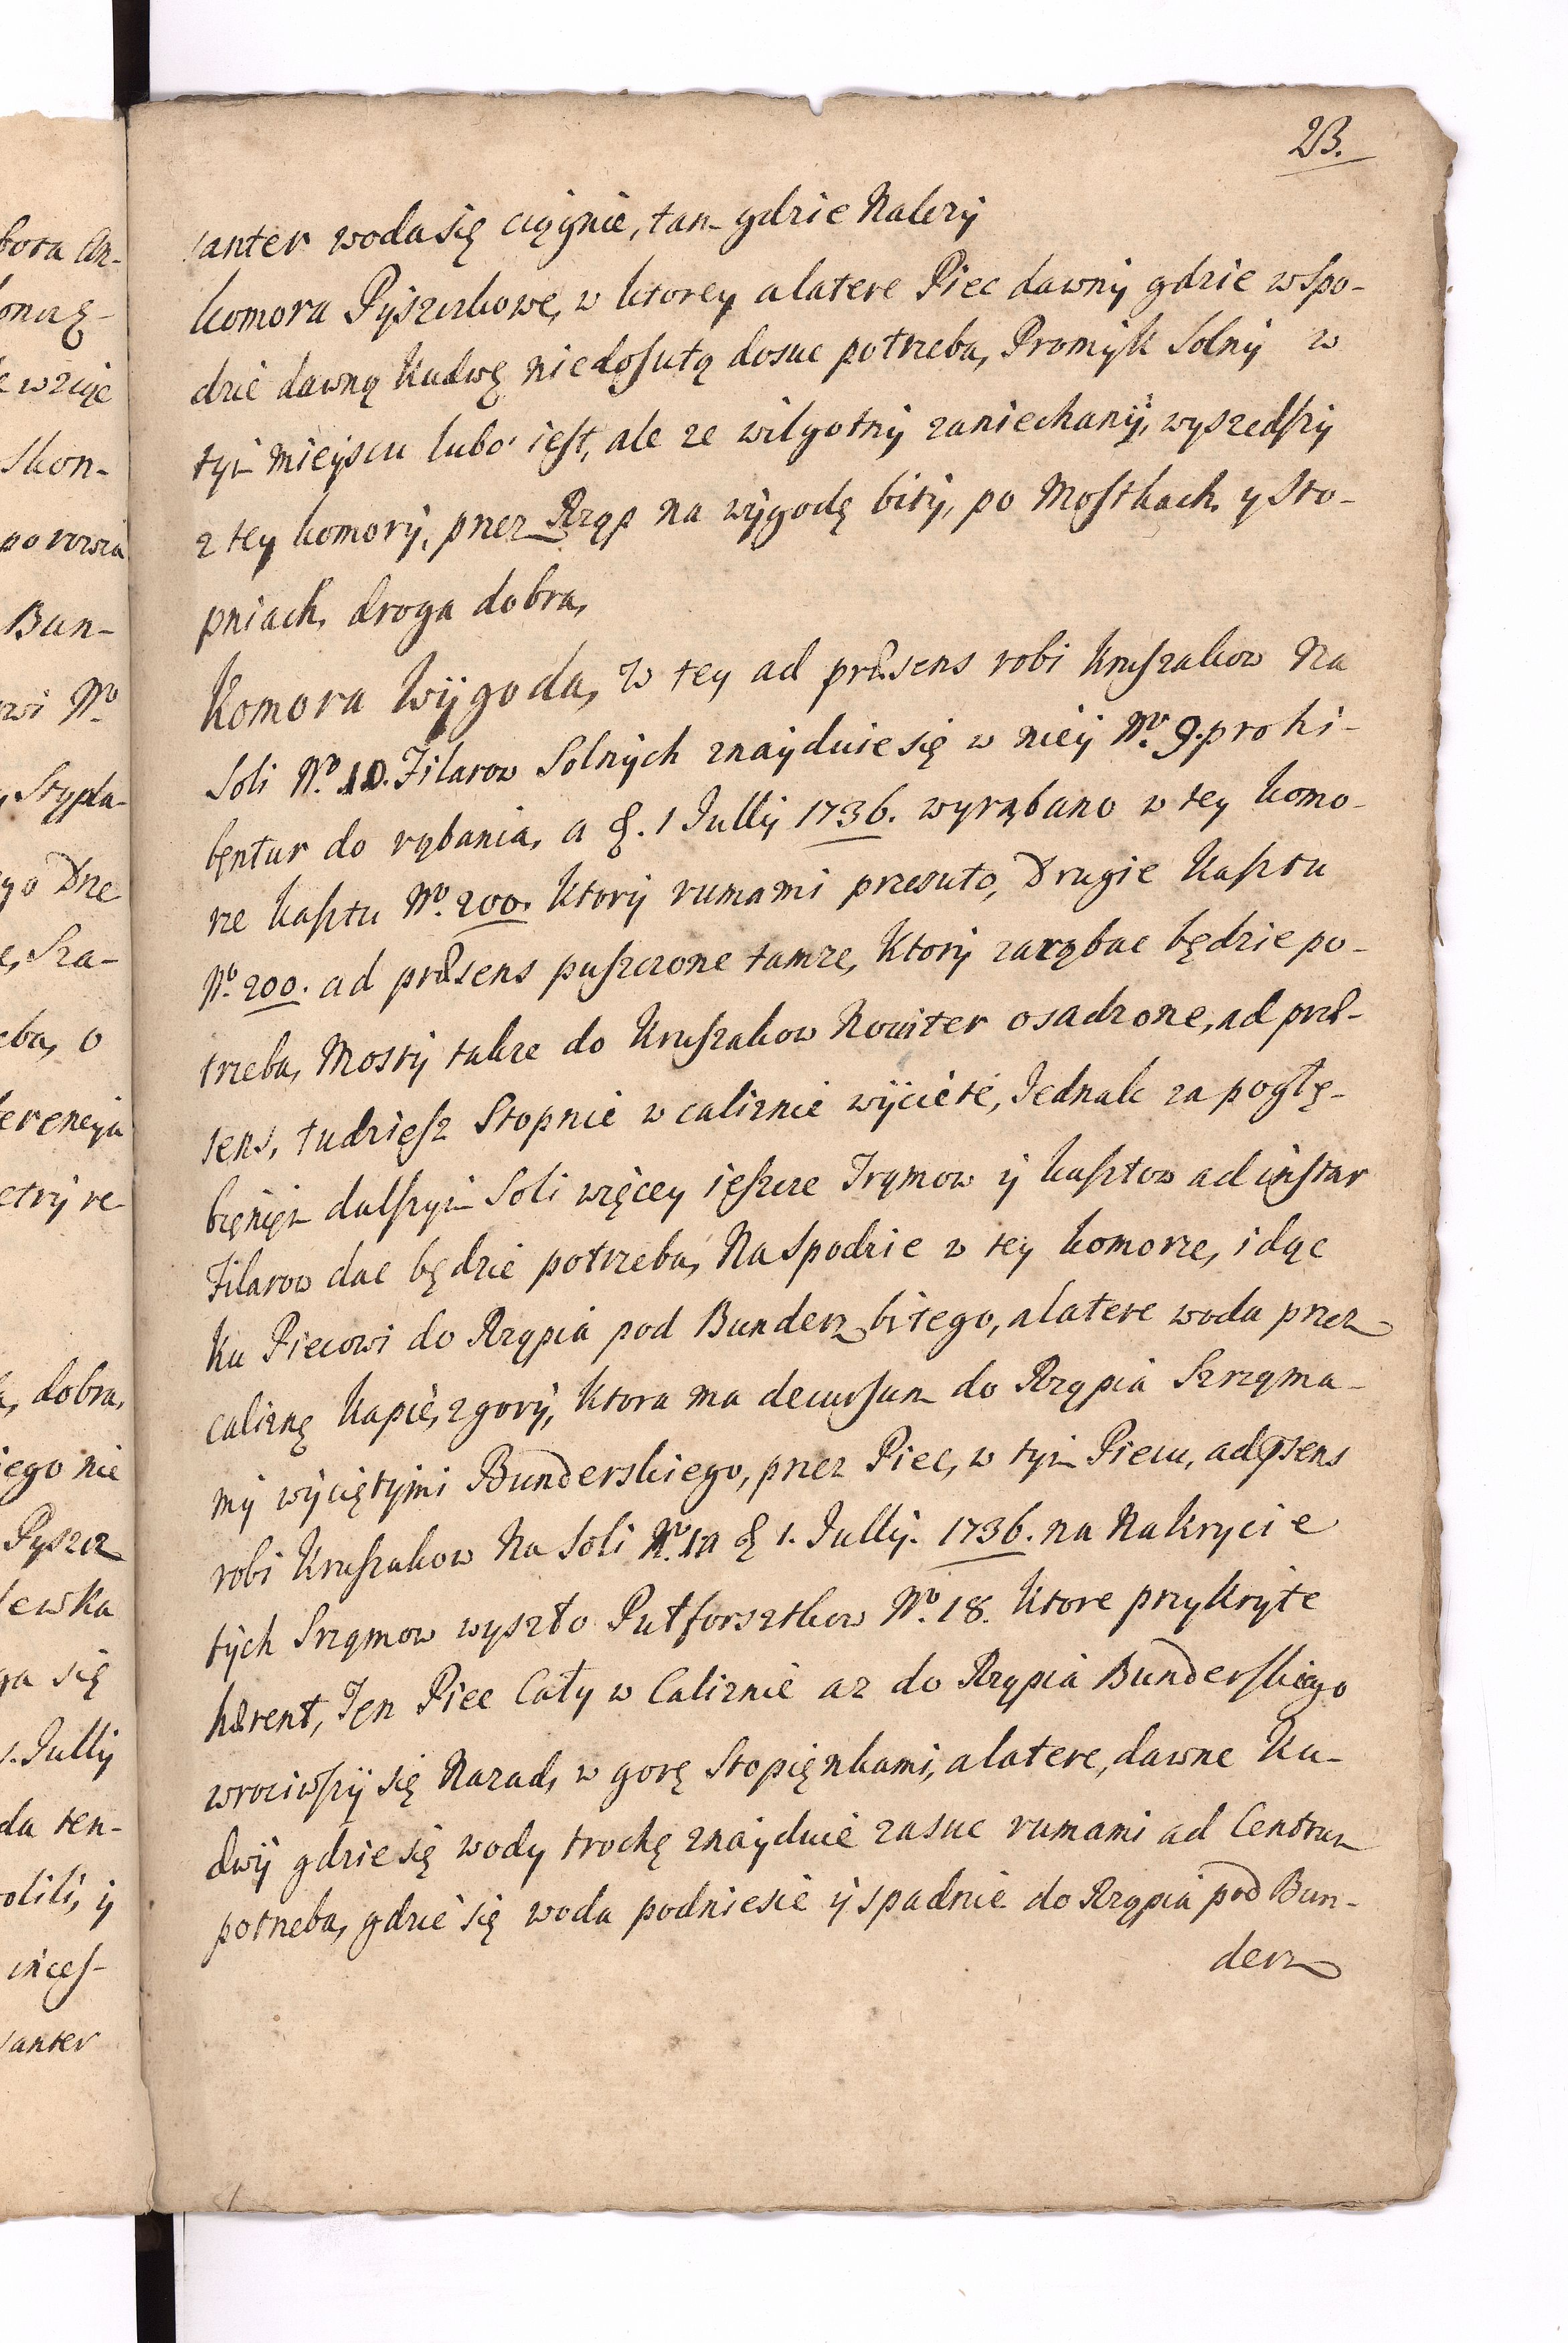 23.
santer woda się ciągnie, tam gdzie Należy
komora Pyszczkowe, w ktorey a latere Piec dawny gdzie w Spo-
dzie dawną Kadwę niedosutą dosuc potrzeba, Promyk Solny w
tym mieyscu lubo iest, ale ze wilgotny zaniechany, wyszedszy
z tey komory, przez Rząp na wygodę bity, po Mostkach y Sto-
pniach, droga dobra,
Komora Wygoda, w tey ad præsens robi Kruszakow Na
Soli No. 10. Filarow Solnych znayduie się w niey No. 9. prohi-
bentur do rąbania, a 1 Jullij 1736. wyrąbano w tey komo-
rze kasztu No. 200. Ktory rumami przesuto, Drugie Kasztu
No. 200. ad præsens puszczone tamze, Ktory zarąbac będzie po-
trzeba, Mosty takze do Kruszakow Noviter osadzone, ad præ-
sens, tudziesz Stopnie w caliznie wycięte, Jednak za pogłę-
bieniem dalszym Soli więcey ieszcze Trymow y kasztow ad instar
Filarow dac będzie potrzeba, Na Spodzie w tey komorze, idąc
ku Piecowi do Rząpia pod Bunderz bitego, a latere woda przez
caliznę Kapie, z gory, Ktora ma decursum do Rząpia Srząma-
my wyciętymi Bunderskiego, przez Piec, w tym Piecu, ad psens
robi Kruszakow Na Soli No. 10 1. Jullij. 1736. na Nakrycie
tych Srzamow wyszło Putforsztkow No. 18. Ktore przykryte
hærent, Ten Piec Cały w Caliznie az do Rząpia Bunderskiego
wrociwszy się Nazad, w gorę Stopięnkami, a latere, dawne Ka-
dwy gdzie się wody trochę znayduie zasuc rumami ad Centrum
potrzeba, gdzie się woda podniesie y spadnie do Rząpia pod Bun-
derz